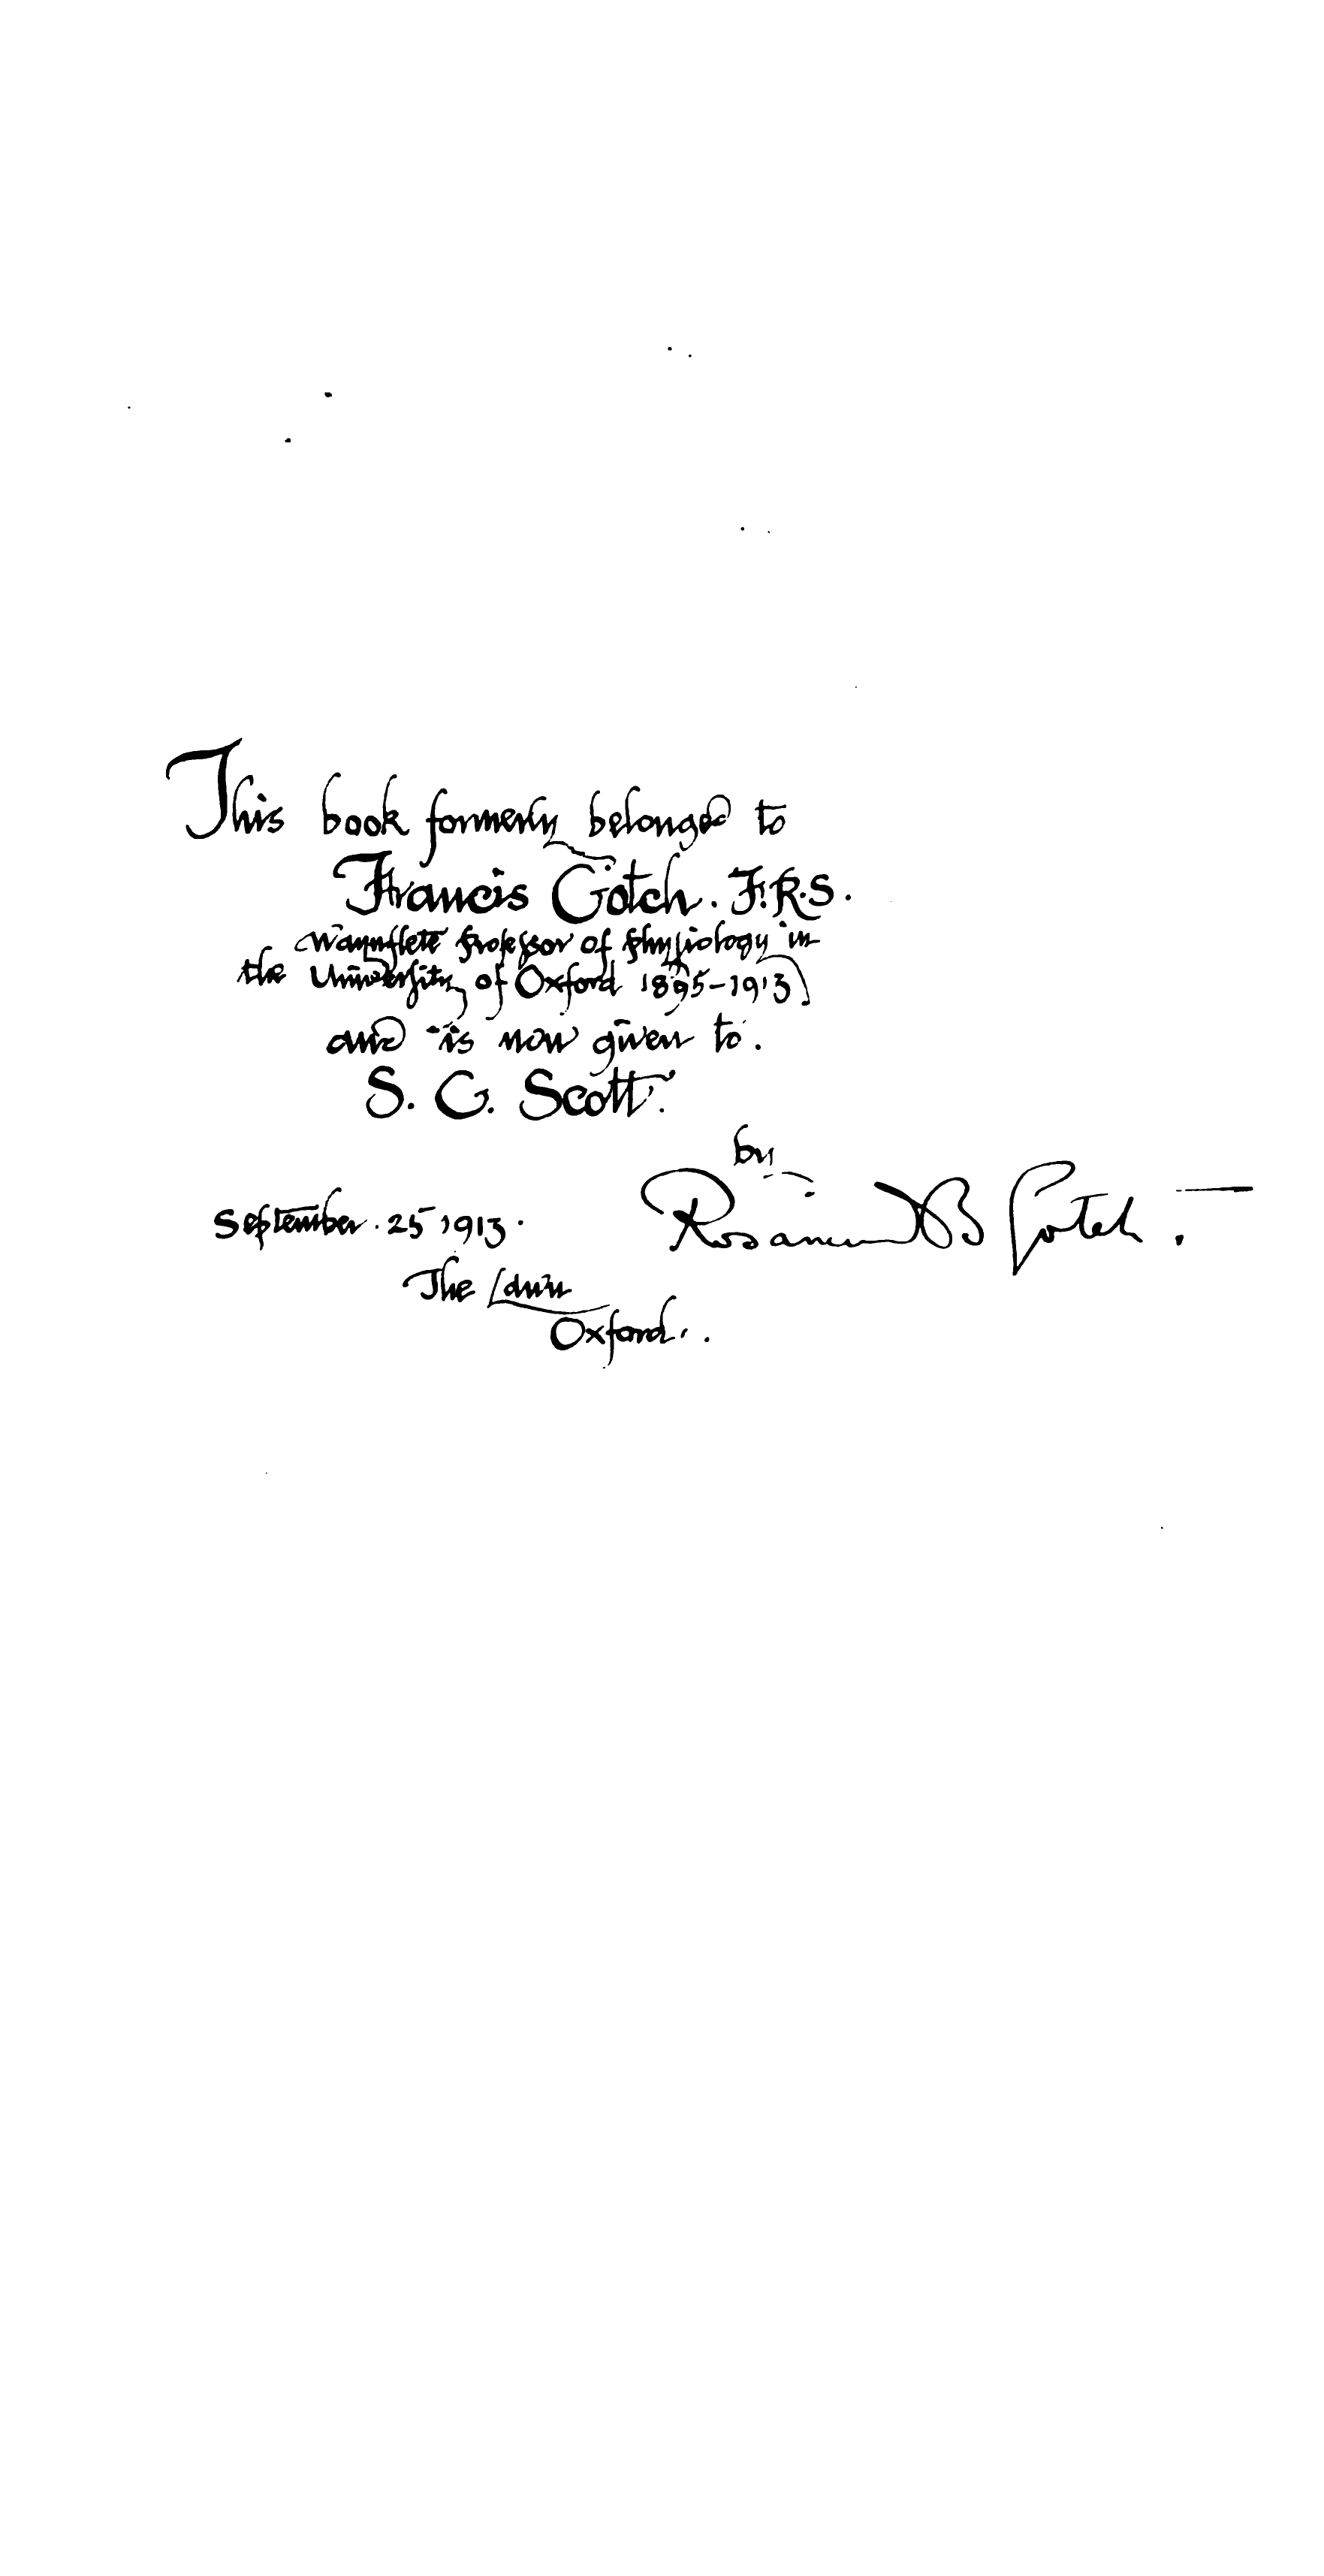 This book formerly belonged to
Francis Gotch. F.R.S.
Waynflete Professor of Physiology in
the University of Oxford 1895-1913
and is now given to.
S. G. Scott.
by
Rosamund B Gotch.
September. 25 1913.
The Lawn
Oxford.